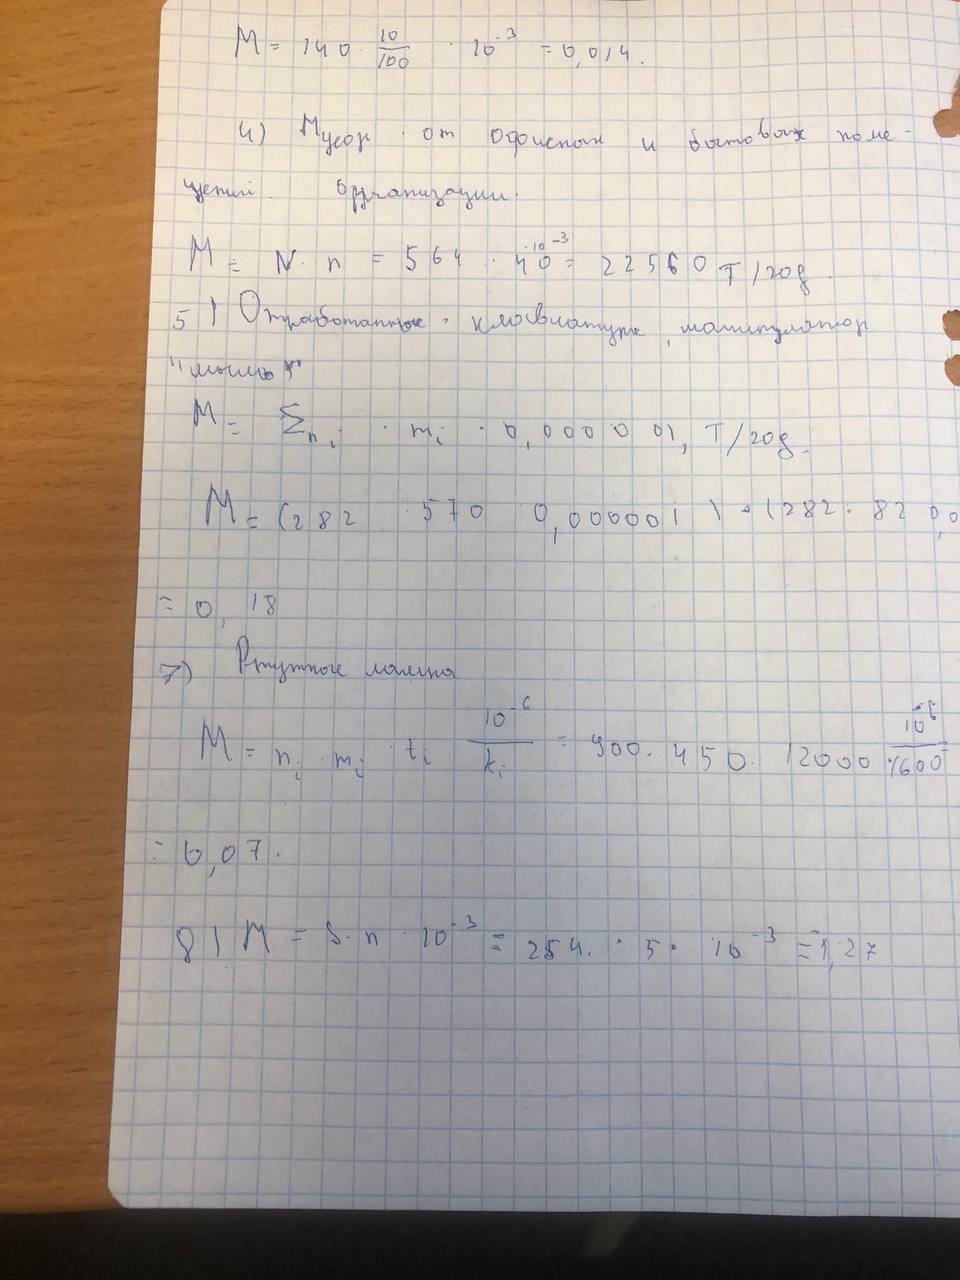 M = 140 · 10/100 · 10⁻³ = 0,014.
4) Мусор от офисных и бытовых поме-
щений организации.
M = N · n = 564 · 40 · 10⁻³ = 22560 т/год.
5) Отработанные клавиатуры, манипулятор
"мышь"
M = Σ nᵢ · mᵢ · 0,000001, т/год.
M = (282 · 570 0,000001) · (282 · 82 · 0,0
= 0,18
7) Ртутные лампы
M = nᵢ · mᵢ · tᵢ 10⁻⁶/kᵢ = 900 · 450 · 12000 10⁻⁶/1600 =
= 0,07.
8) M = S · n · 10⁻³ = 254 · 5 · 10⁻³ = 1,27